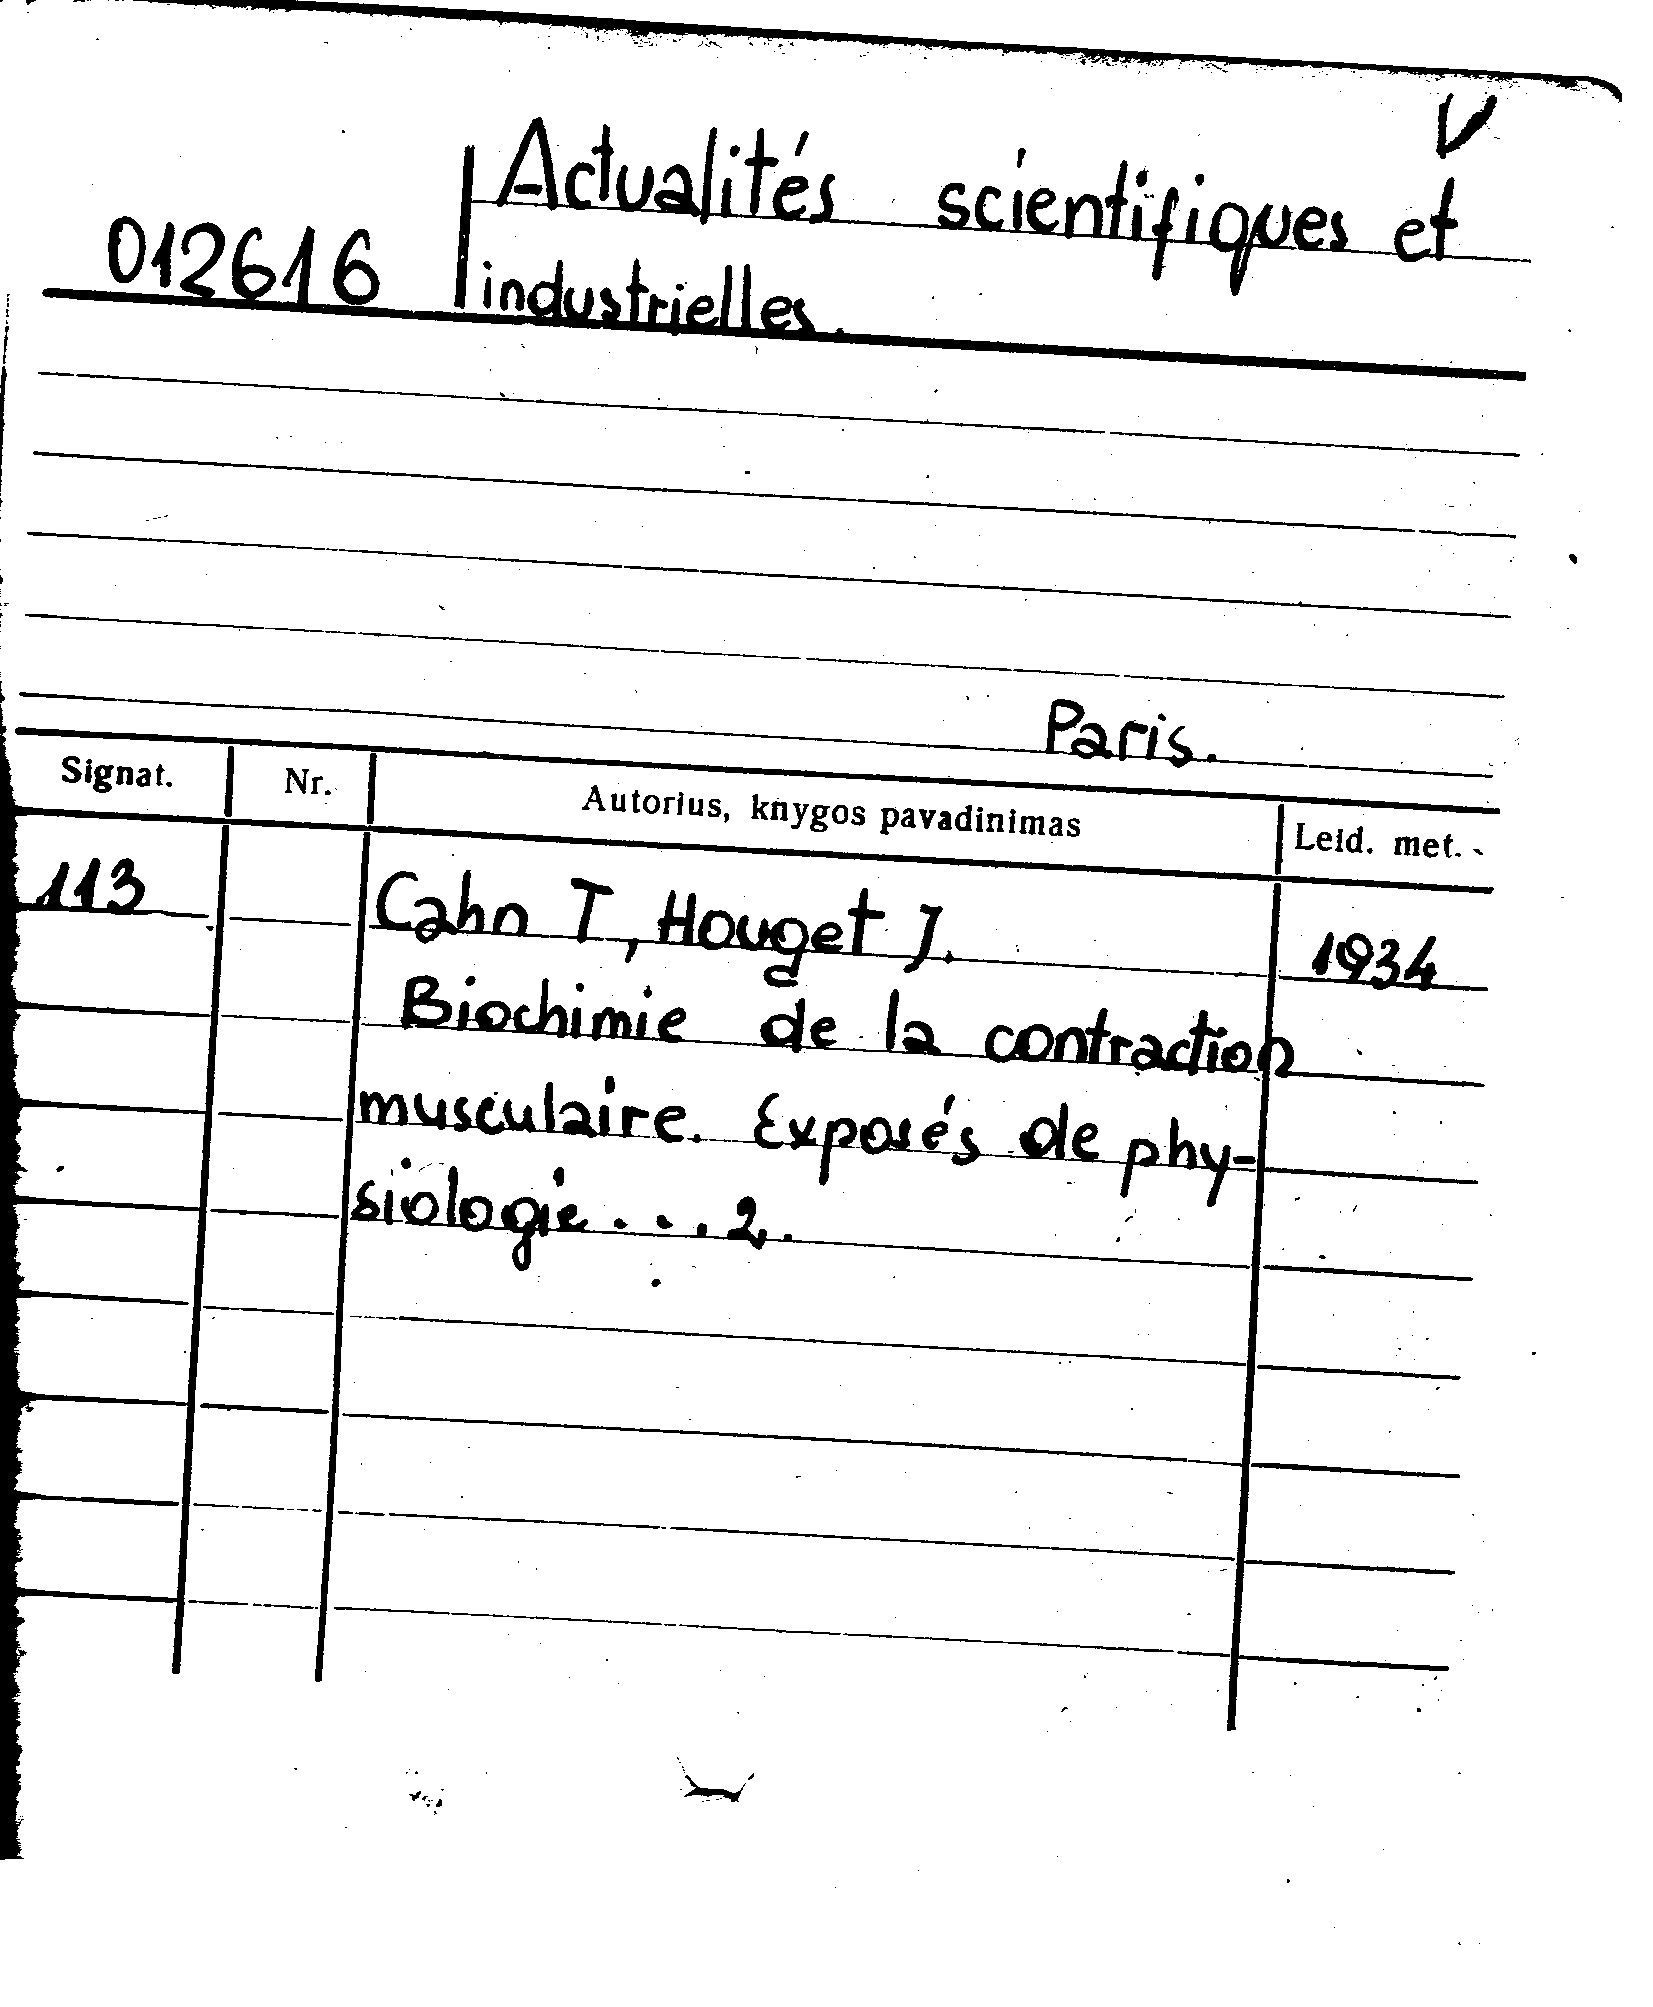 V
Actualités scientifiques et
012616 industrielles.
Paris.
Signat. Nr. Autorius, knygos pavadinimas Leid. met.
113 Cahn T, Houget J. 1934
Biochimie de la contraction
musculaire. Exposés de phy-
siologie . . . 2.